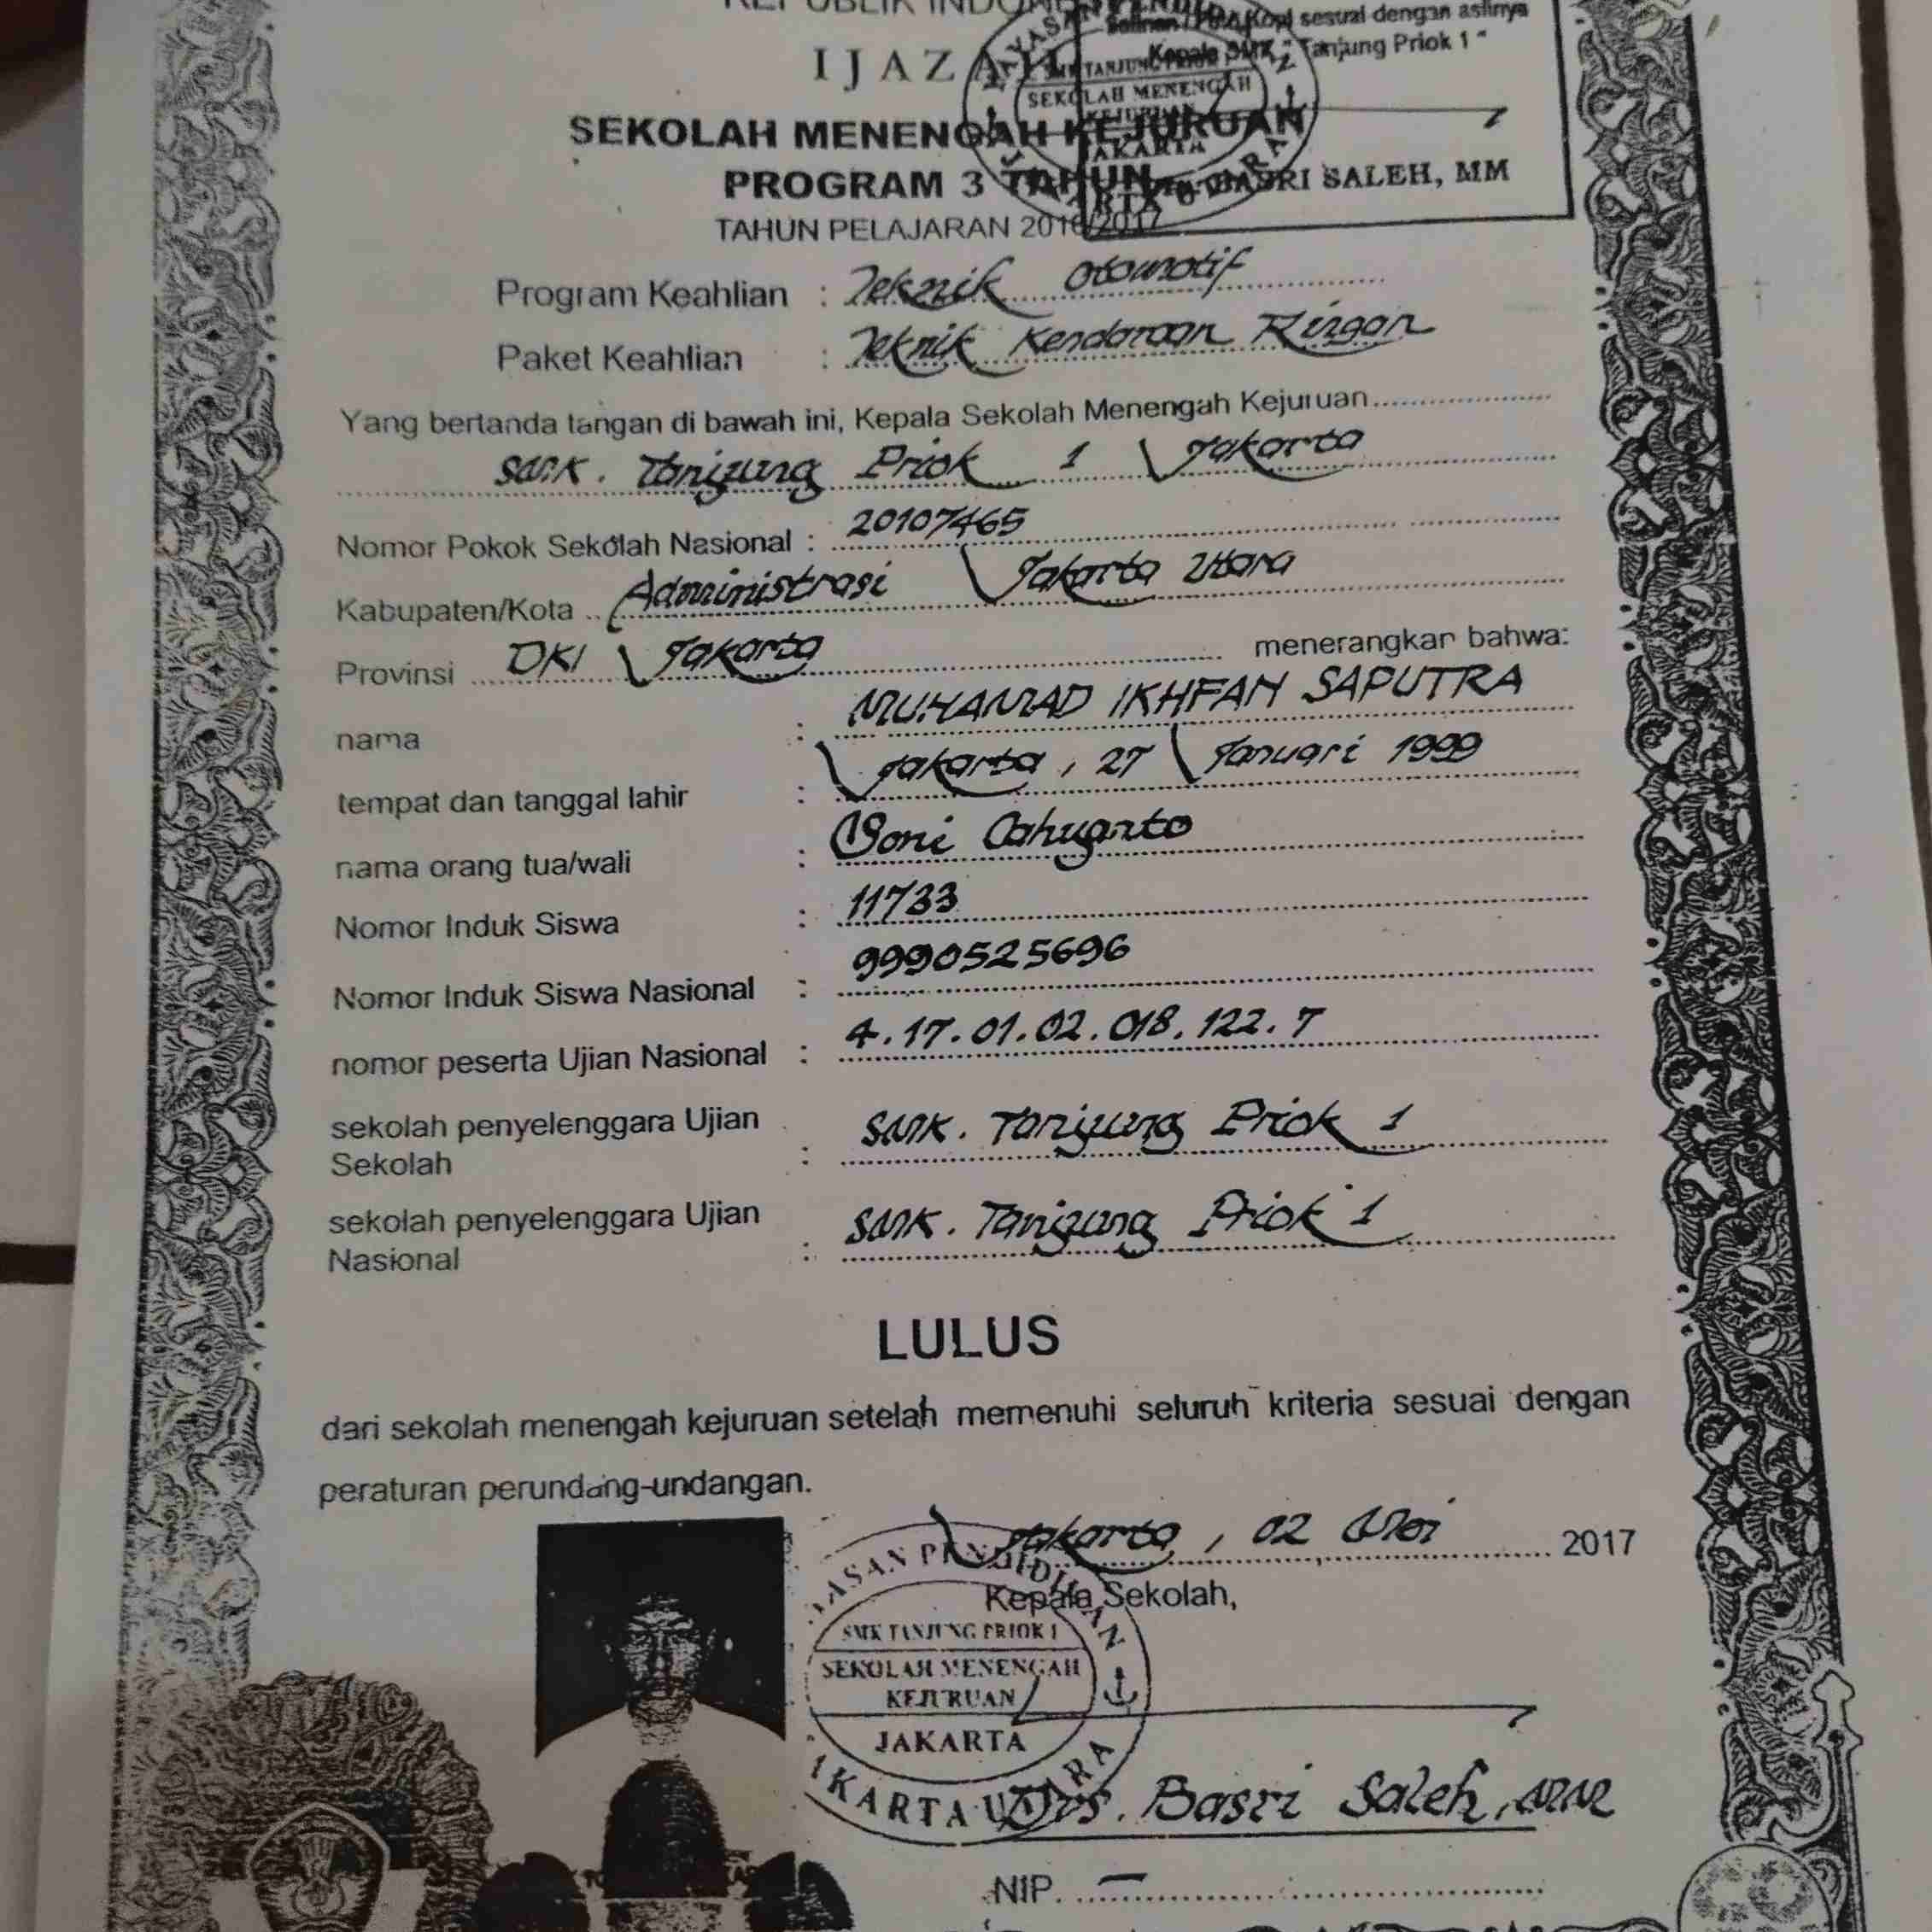 REPUBLIK INDONESIA
Salinan / Foto Kopi sesuai dengan aslinya
Kepala SMK " Tanjung Priok 1 "
IJAZAH
SEKOLAH MENENGAH KEJURUAN
PROGRAM 3 TAHUN
Drs. BASRI SALEH, MM
TAHUN PELAJARAN 2016/2017
Program Keahlian : Teknik Otomotif
Paket Keahlian : Teknik Kendaraan Ringan
Yang bertanda tangan di bawah ini, Kepala Sekolah Menengah Kejuruan
SMK. Tanjung Priok 1 Jakarta
Nomor Pokok Sekolah Nasional : 20107465
Kabupaten/Kota Administrasi Jakarta Utara
Provinsi DKI Jakarta menerangkan bahwa:
nama : MUHAMAD IKHFAN SAPUTRA
tempat dan tanggal lahir : Jakarta, 27 Januari 1999
nama orang tua/wali : Soni Cahyanto
Nomor Induk Siswa : 11733
Nomor Induk Siswa Nasional : 9990525696
nomor peserta Ujian Nasional : 4.17.01.02.018.122.7
sekolah penyelenggara Ujian
Sekolah : SMK. Tanjung Priok 1
sekolah penyelenggara Ujian
Nasional : SMK. Tanjung Priok 1
LULUS
dari sekolah menengah kejuruan setelah memenuhi seluruh kriteria sesuai dengan
peraturan perundang-undangan.
Jakarta, 02 Mei 2017
Kepala Sekolah,
YAYASAN PENDIDIKAN
SMK TANJUNG PRIOK 1
SEKOLAH MENENGAH
KEJURUAN
JAKARTA
JAKARTA UTARA
Drs. Basri Saleh, MM
NIP. –